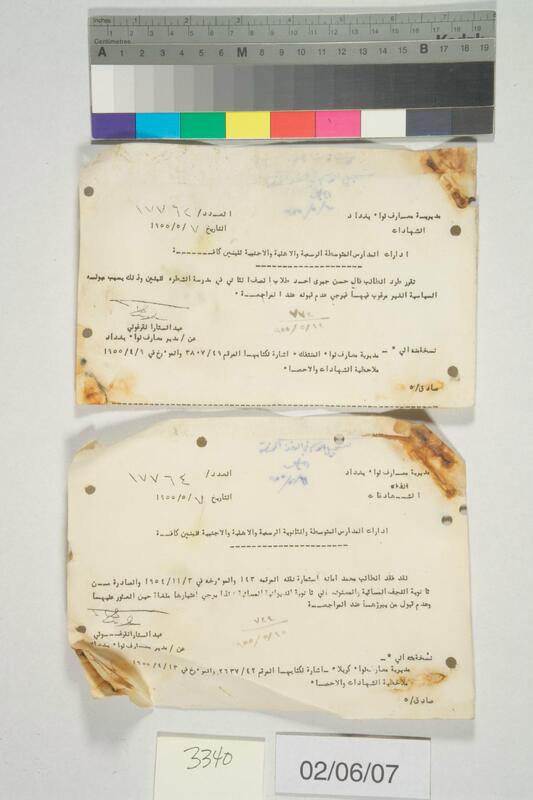 Inches
Centimetres
A
M
B
مديرية معارف لواء بغداد
الشهادات
العدد/ ١٧٧٦٢
التاريخ ١٩٥٥/٥/٧
ادارات المدارس المتوسطة الرسمية والاهلية والاجنبية للبنين كافـــة
تقرر طرد الطالب حسن جبري احمد طلاب الصف الثاني في مدرسة الشطرة للبنين وذلك بسبب ميوله
السياسية الغير مرغوب فيها فيرجى عدم قبوله عند المراجعـــة
عبدالستار القرغولي
عن / مدير معارف لواء بغداد
نسخة منه الى
مديرية معارف لواء المنتفك اشارة لكتابها المرقم ٣٨٠٧/٤١ والمؤرخ في ١٩٥٥/٤/٦
ملاحظية الشهادات والاحصاء
صادق/٥
مديرية معارف لواء بغداد
الشهادات
العدد/ ١٧٧٦٤
التاريخ ١٩٥٥/٥/٧
ادارات المدارس المتوسطة والثانوية الرسمية والاهلية والاجنبية للبنين كافـــة
لقد فقد الطالب محمد امانه استمارة نقله المرقمة ١٤٣ والمؤرخة في ١٩٥٤/١١/٣ والصادرة مـــن
ثانوية النجف المسائية الى ثانوية الديوانية المسائية لذا يرجى اعتبارها ملغاة حين العثور عليها
وعدم قبول من يبرزها عند المراجعـــة
عبدالستار القرغـــولي
عن / مدير معارف لواء بغداد
نسخة منه الى
مديرية معارف لواء كربلاء اشارة لكتابها المرقم ٢٦٣٧/٤٢ والمؤرخ في ١٩٥٥/٤/١٣
ملاحظية الشهادات والاحصاء
صادق/٥
3340
02/06/07